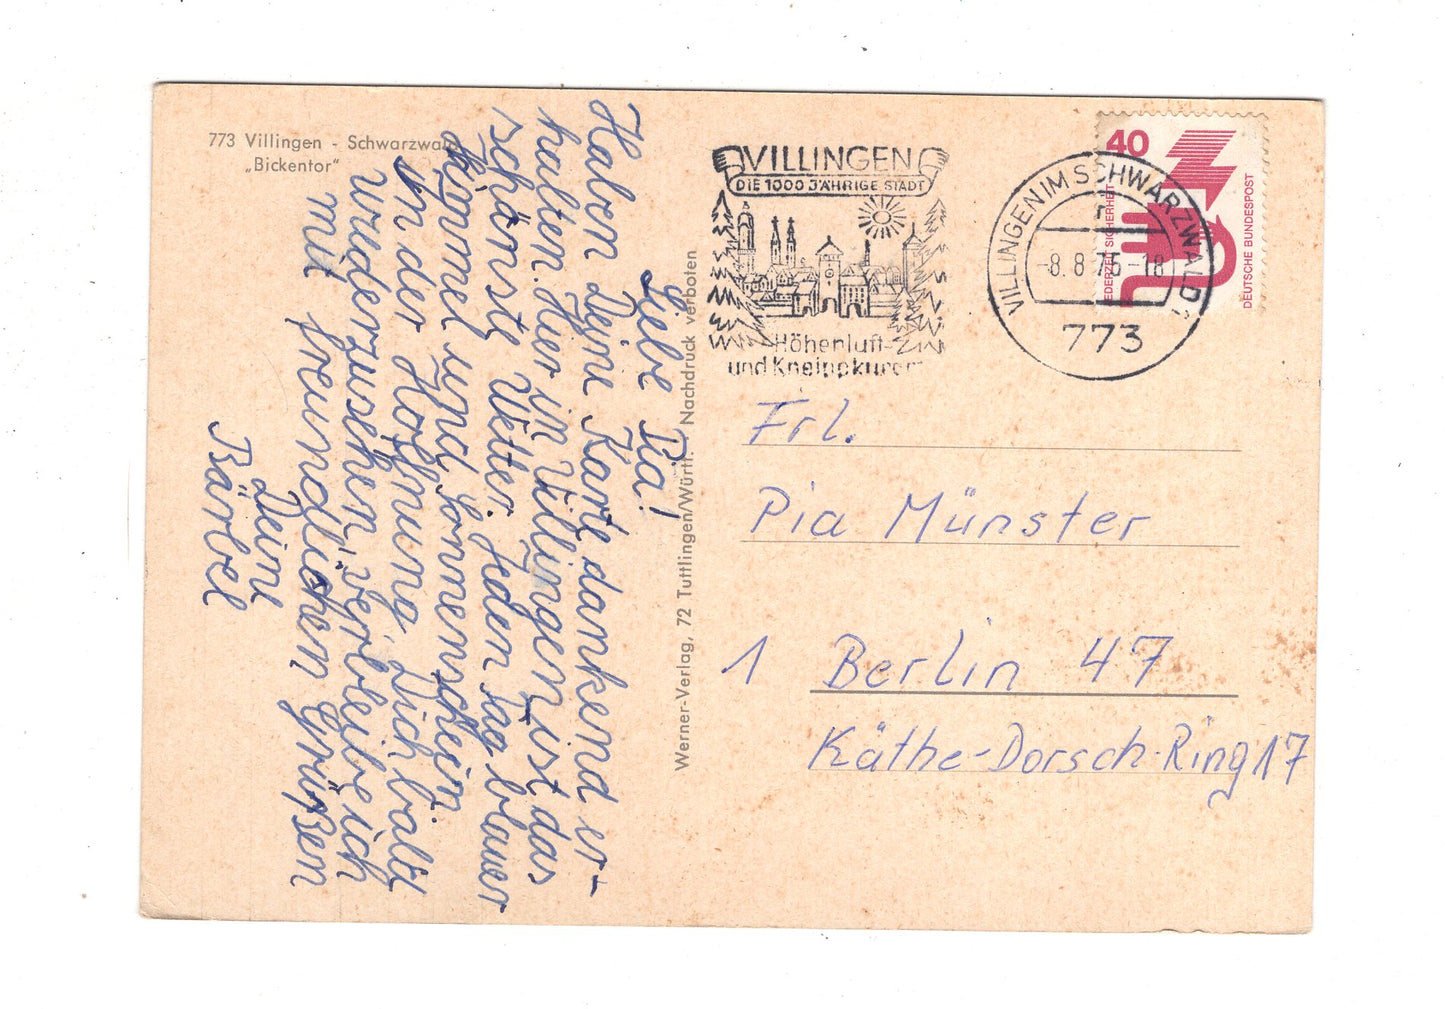 773 Villingen - Schwarzwald
„Bickentor“
Liebe Pia!
Haben Deine Karte dankend er-
halten. Hier in Villingen ist das
schönste Wetter. Jeden Tag blauer
Himmel und Sonnenschein.
In der Hoffnung, Dich bald
wiederzusehen, verbleibe ich
mit freundlichen Grüßen
Deine
Bärbel
Werner-Verlag, 72 Tuttlingen/Württ. Nachdruck verboten
VILLINGEN
DIE 1000 JÄHRIGE STADT
Höhenluft-
und Kneippkurort
VILLINGEN IM SCHWARZWALD 1
-8.8.75-18
773
40
JEDERZEIT SICHERHEIT
DEUTSCHE BUNDESPOST
Frl.
Pia Münster
1 Berlin 47
Käthe-Dorsch-Ring 17